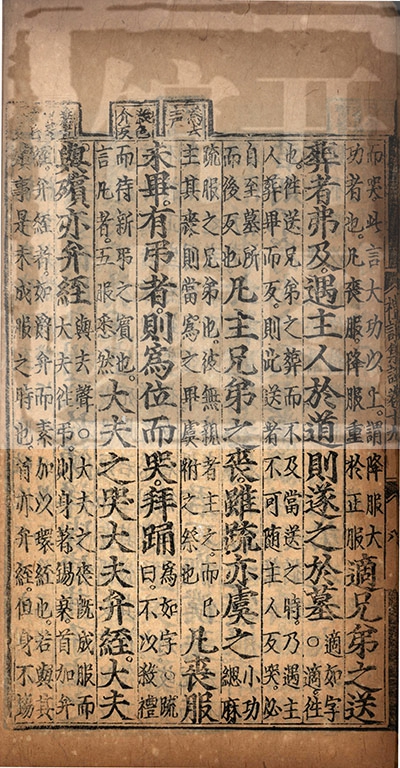 而哭此言大功以上謂降服大
功者也凡喪服降服重於正服
適兄弟之送
葬者弗及遇主人於道則遂之於墓
適如字
○適徃
也徃送兄弟之葬而不及當送之時乃遇主
人葬畢而反則此送者不可隨主人反哭必
自至墓所
而後反也
凡主兄弟之喪雖疏亦虞之
小功
緦麻
疏服之兄弟也彼無親者主之而已
主其喪則當為之畢虞祔之祭也
凡喪服
未畢有弔者則為位而哭拜踊
為如字○疏
曰不以殺禮
而待新弔之賓也
言凡者五服悉然
大夫之哭大夫弁絰大夫
與殯亦弁絰
與去聲○大夫之喪既成服而
大夫徃弔則身著錫衰首加弁
絰弁絰者如爵弁而素加以環絰也若與其
殯事是未成服之時也首亦弁絰但身不錫
為去
聲
殺色
介反